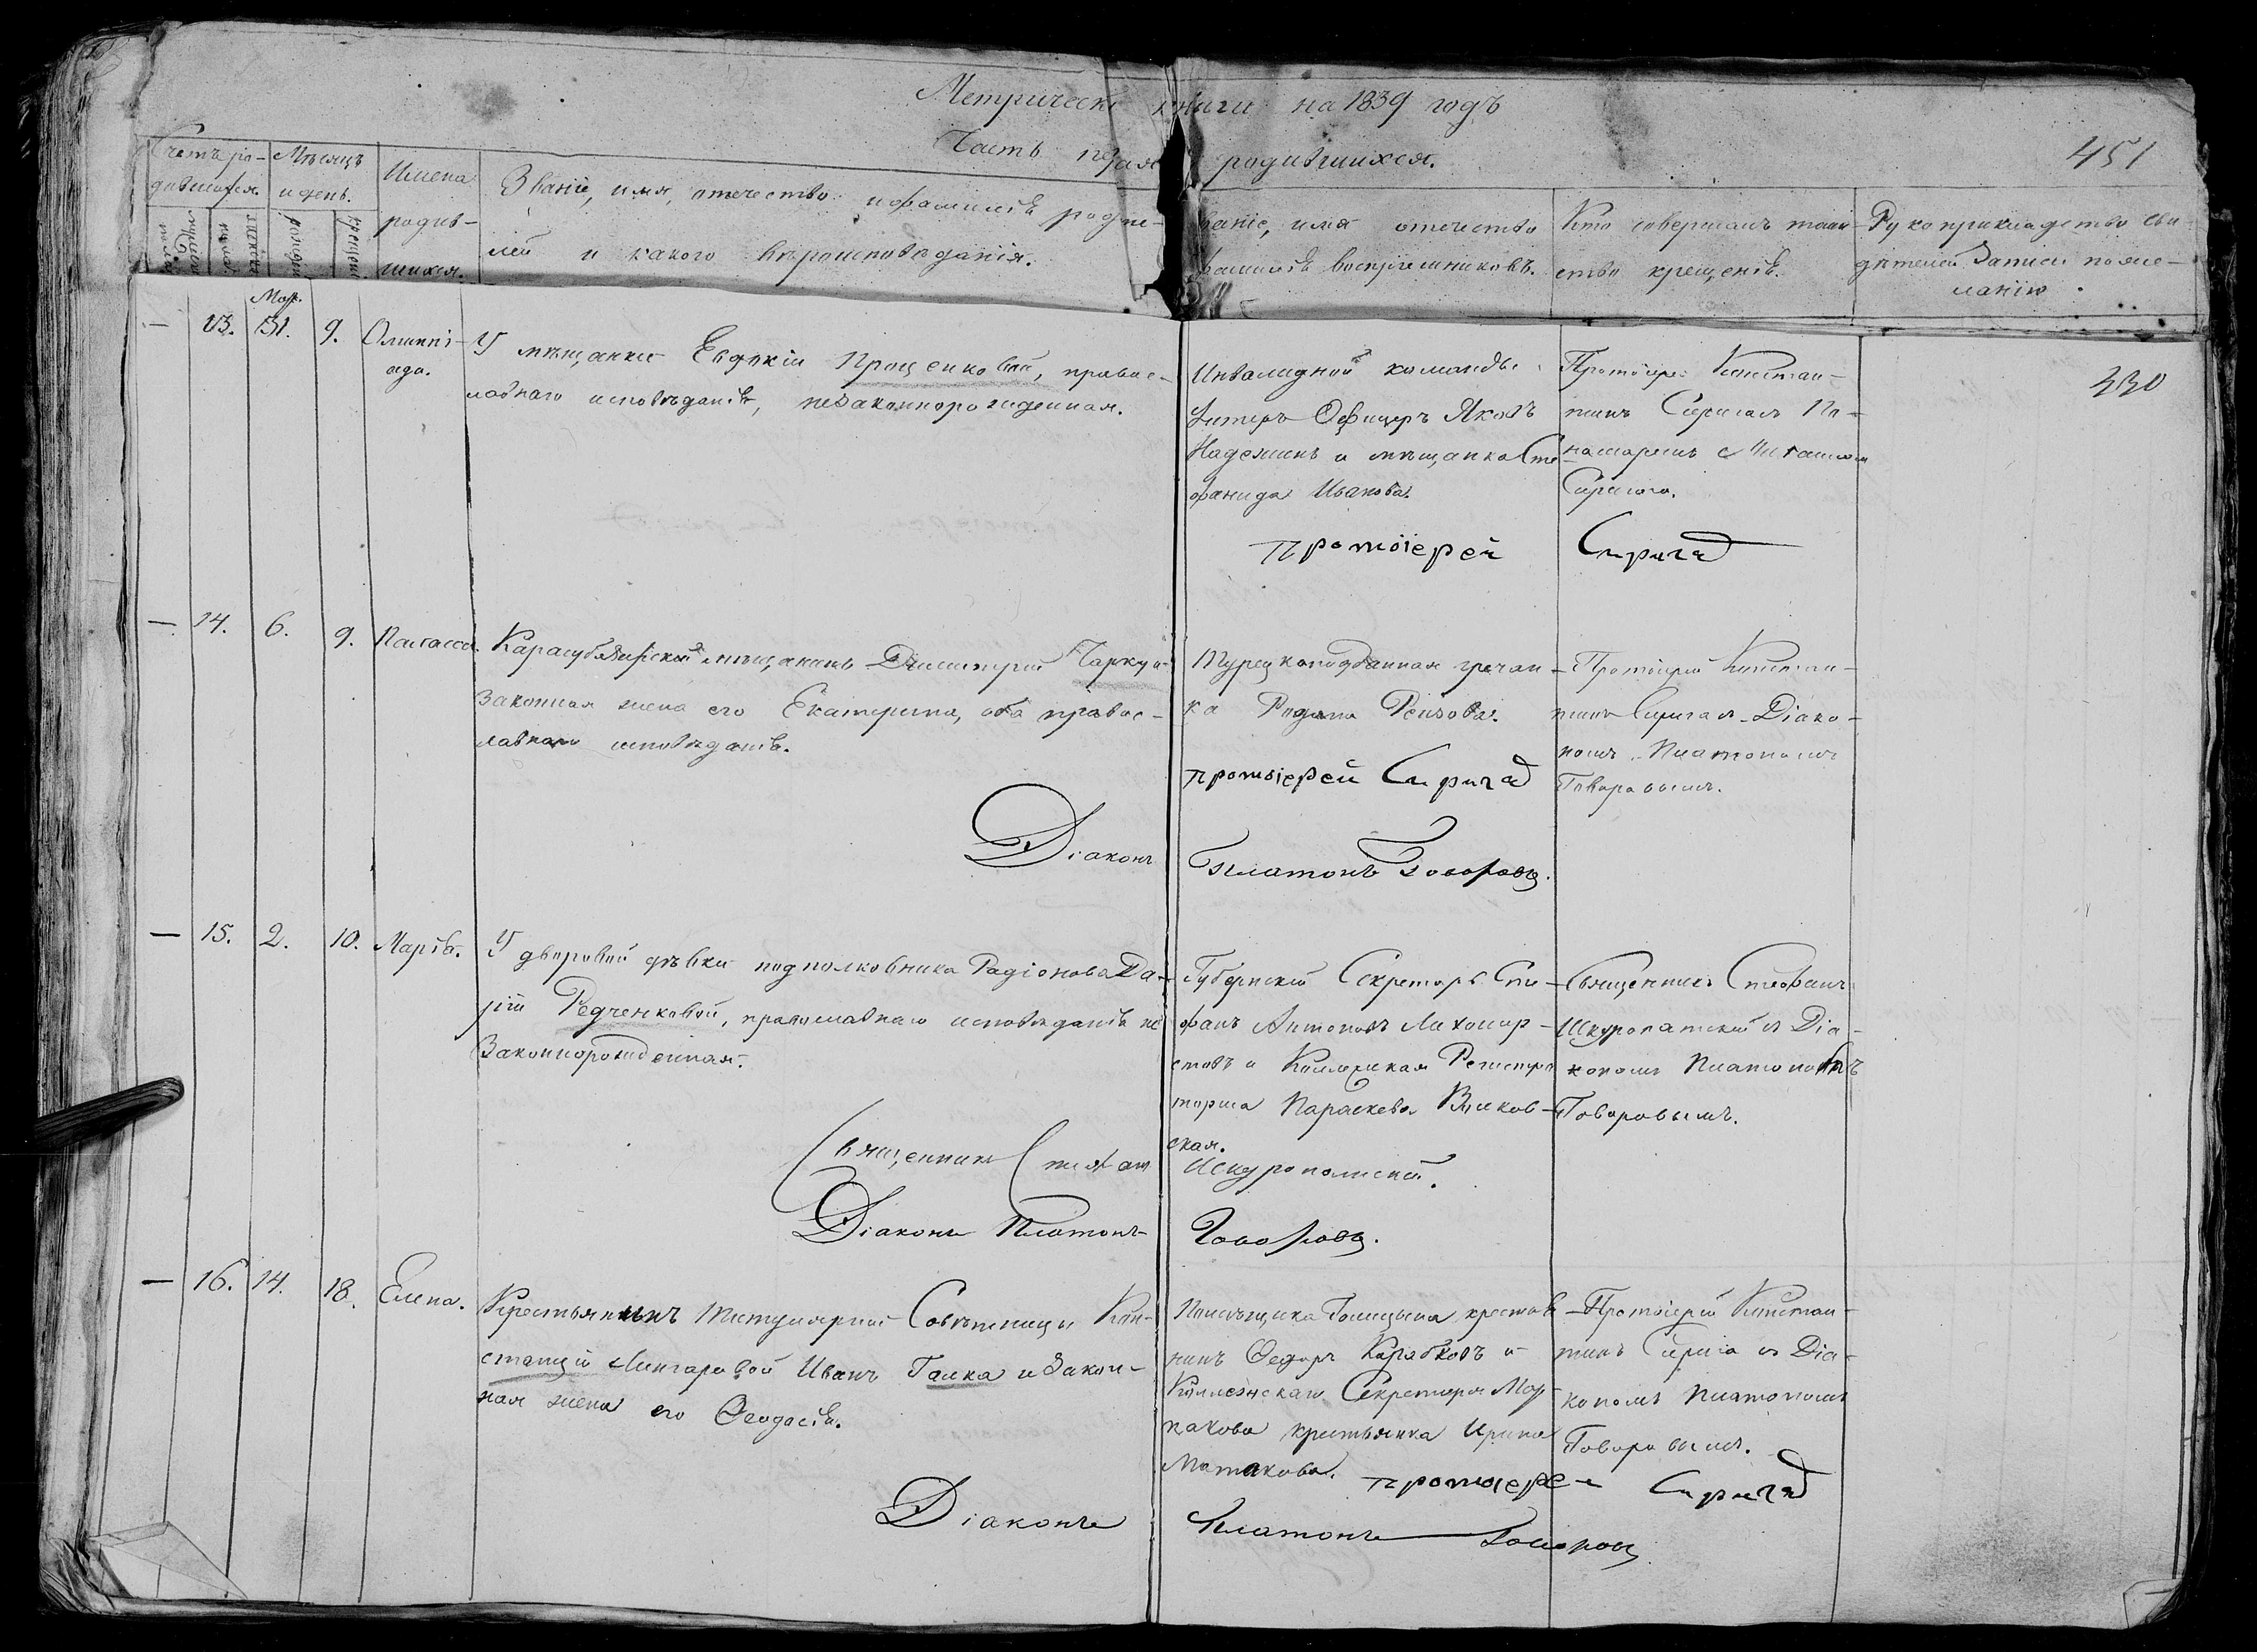 Метрическ книги на 1839 годъ
Часть родившихся.
451
Счетъ ро-
дившихся.
мужеска
пола
женска
пола
Мѣсяцъ
и день.
рожден
крещен
Имена
родив-
шихся.
Званіе, имя, отечество и фамилія родите-
лей и какого вѣроисповѣданія.
званіе, имя отечество
фамилія воспріемниковъ.
Кто совершалъ таин
ство крещенія.
Рукоприкладство сви-
дѣтелей записи по же-
ланію
330
— 13. 31. 9. Олимпі-
ада.
У мѣщанки Евдокіи Проценковой, правос-
лавнаго исповѣданія, незаконнорожденная.
Инвалидной команды
Унтеръ Офицеръ Яковъ
и мѣщанка Сте
фанида Иванова.
Протоіерей Констан-
тинъ по-
номаремъ
протоіерей
— 14. 6. 9. Пелагея
Карасубазарскій мѣщанинъ Димитрій
законная жена его Екатерина, оба правос-
лавнаго исповѣданія.
Турецкоподданная гречан-
ка
Протоіерей Констан-
тинъ съ Діако-
номъ Платономъ
Говоровымъ.
протоіерей
Діаконъ Платонъ Говоровъ.
— 15. 2. 10. Марія.
У дворовой дѣвки подполковника Радіонова Да-
рьи Редченковой, православнаго исповѣданія не
законнорожденная.
Губернскій Секретарь Сте-
фанъ Антоновъ
и Коллежская Регистра
торша Параскева
ская.
Священникъ Стефанъ
Шкуропатскій съ Діа-
кономъ Платономъ
Говоровымъ.
Священникъ Стефан Шкуропатскій.
Діаконъ Платонъ Говоровъ.
— 16. 14. 18. Елена.
Крестьянинъ Титулярной Совѣтницы Кон-
станціи Иванъ Галка и закон-
ная жена его Ѳеодосія.
Помѣщика Голицына крестья
нинъ Ѳедоръ и
Коллежскаго Секретаря
крестьянка Ирина
Протоіерей Констан-
тинъ съ Діа-
кономъ Платономъ
Говоровымъ.
протоіерей
Діаконъ Платонъ Говоровъ